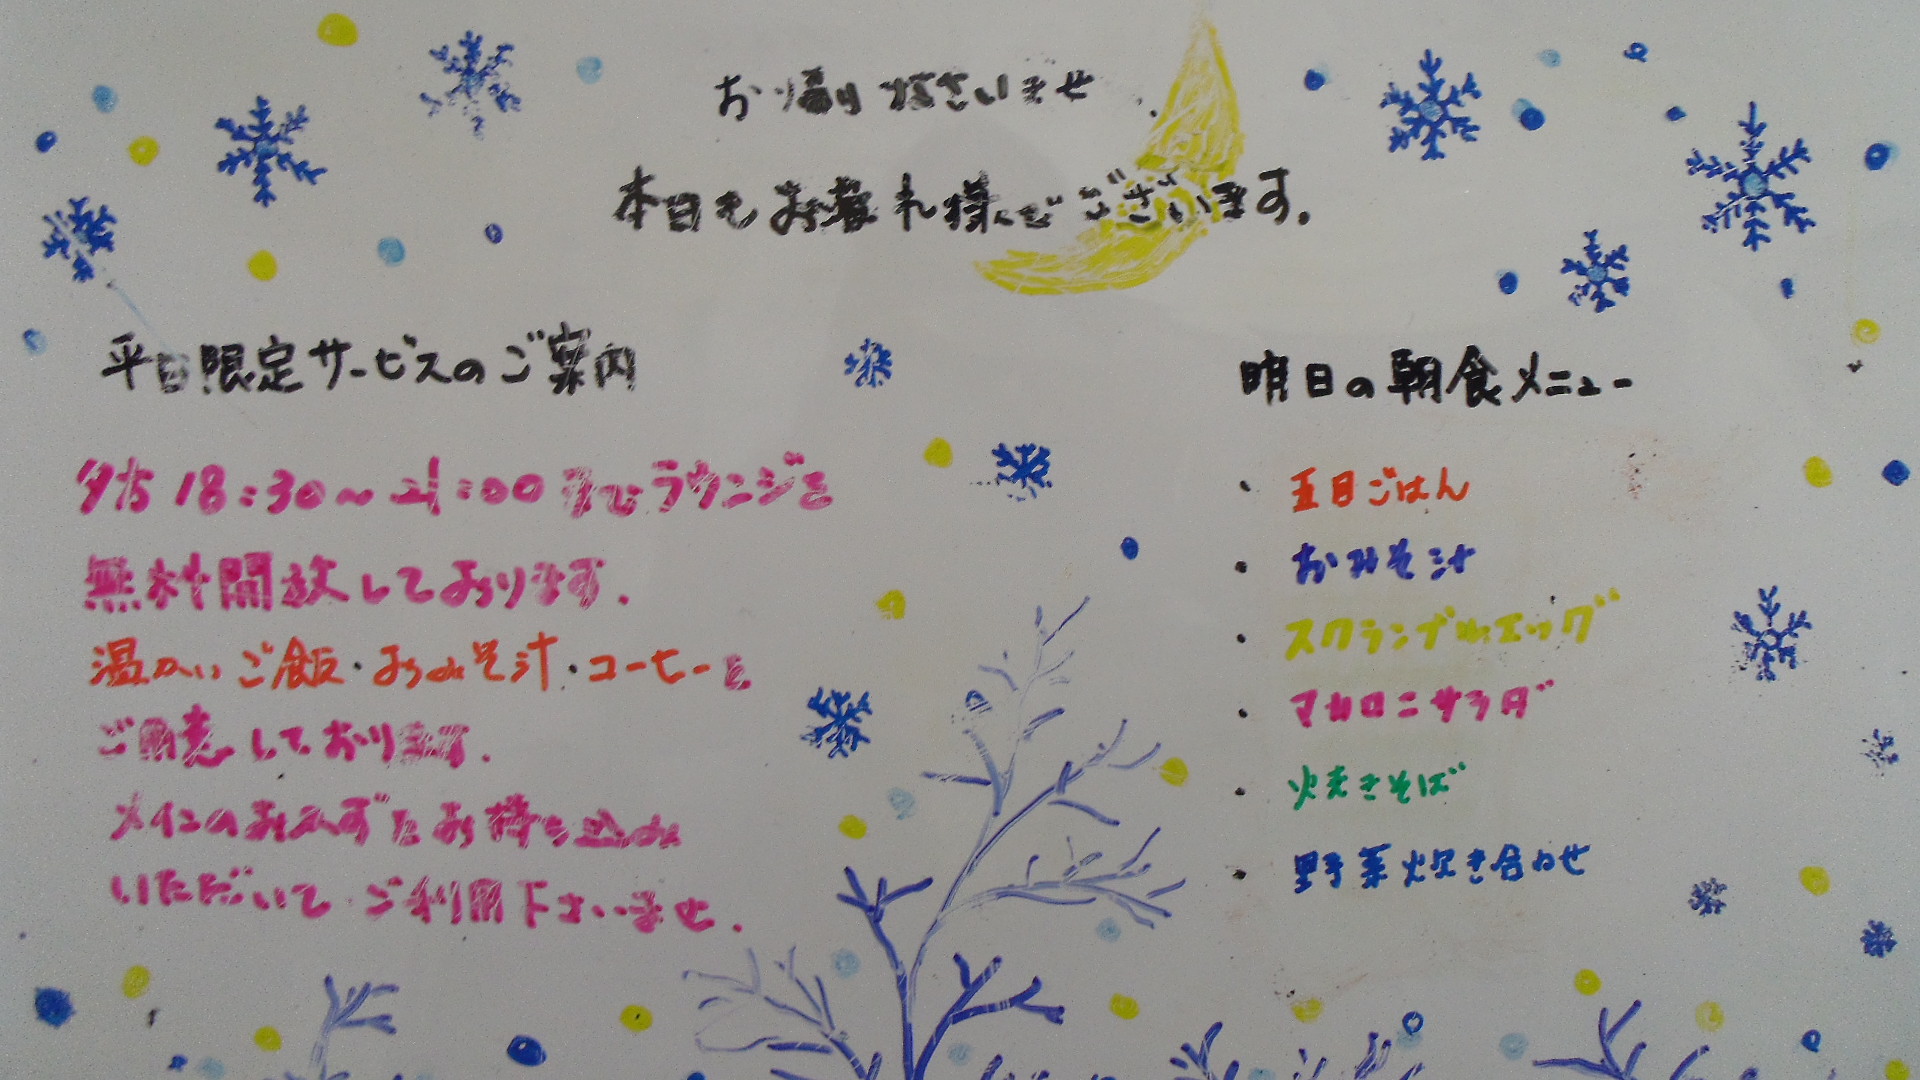 お帰りなさいませ
本日もお疲れ様でございます。
平日限定サービスのご案内
夕方18:30～21:00までラウンジを
無料開放しております。
温かいご飯・おみそ汁・コーヒーを
ご用意しております。
メインのおかずをお持ち込み
いただいてご利用下さいませ。
明日の朝食メニュー
・五目ごはん
・おみそ汁
・スクランブルエッグ
・マカロニサラダ
・焼きそば
・野菜炊き合わせ